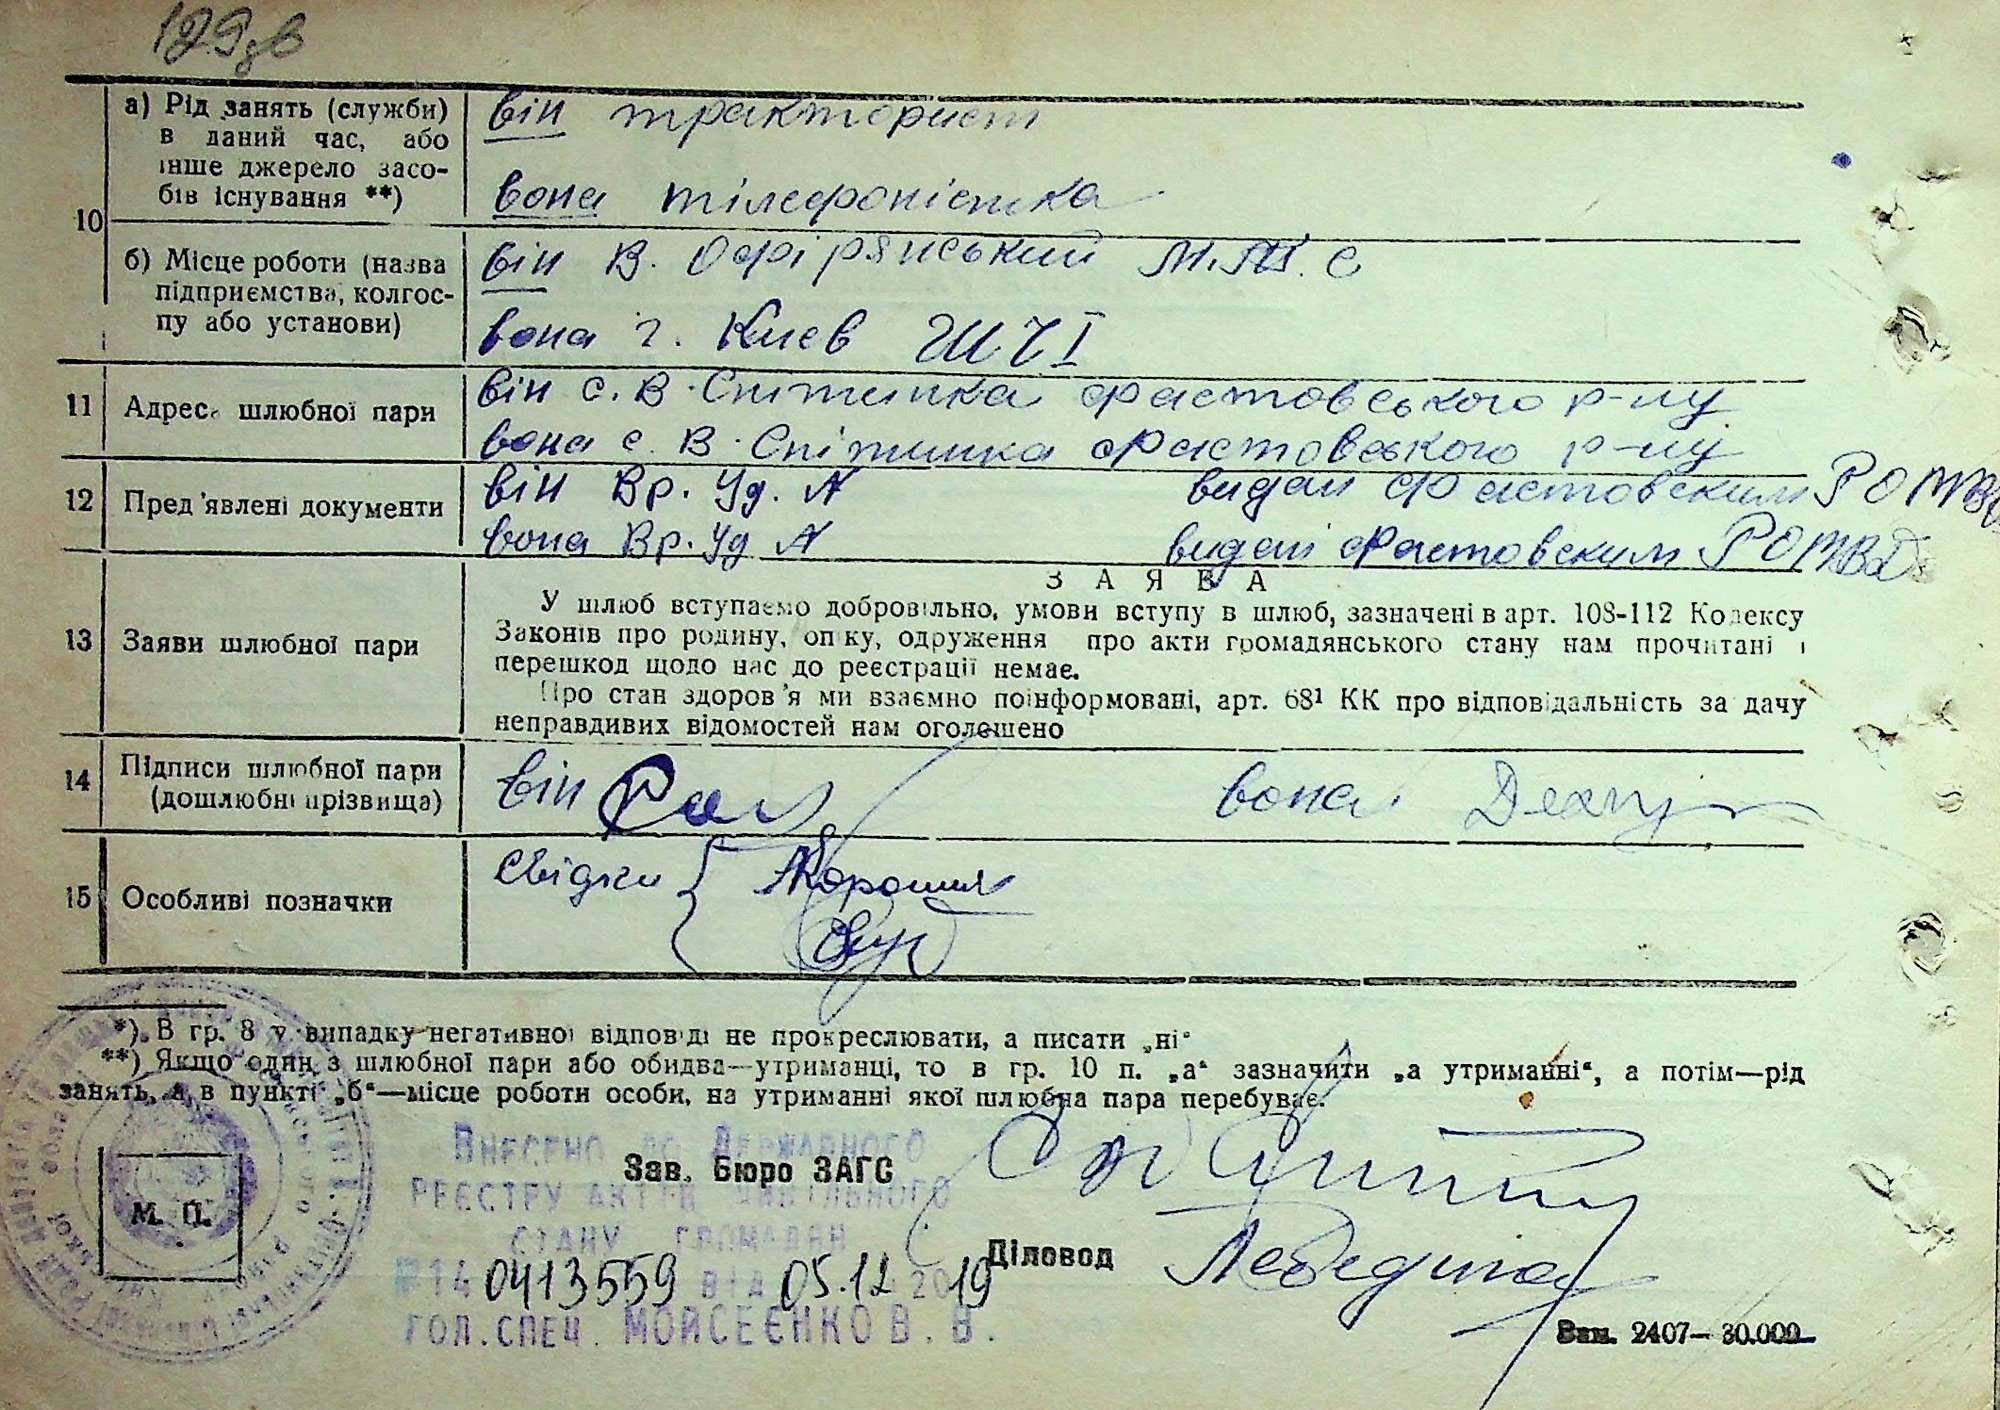 129зв
10
а) Рід занять (служби)
в даний час, або
інше джерело засо-
бів існування **)
він тракторист
вона тілефоністка
б) Місце роботи (назва
підприємства, колгос-
пу або установи)
він В. Офірянський М.Т.С
вона г. Киев ШЧ I
11
Адреса шлюбної пари
він с. В. Снітинка Фастовського р-ну
вона с. В. Снітинка Фастовського р-ну
12
Пред'явлені документи
він Вр. Уд. № видан Фастовским РОМВД
вона Вр. Уд № видан Фастовским РОМВД
13
Заяви шлюбної пари
ЗАЯВА
У шлюб вступаємо добровільно, умови вступу в шлюб, зазначені в арт. 108-112 Кодексу
Законів про родину, опіку, одруження про акти громадянського стану нам прочитані і
перешкод щодо нас до реєстрації немає.
Про стан здоров'я ми взаємно поінформовані, арт. 68¹ КК про відповідальність за дачу
неправдивих відомостей нам оголошено
14
Підписи шлюбної пари
(дошлюбні прізвища)
він
вона
15
Особливі позначки
Свідки
*) В гр. 8 у випадку негативної відповіді не прокреслювати, а писати „ні“
**) Якщо один з шлюбної пари або обидва—утриманці, то в гр. 10 п. „а“ зазначити „а утриманні“, а потім—рід
занять, а в пункті „б“—місце роботи особи, на утриманні якої шлюбна пара перебуває.
Внесено до Державного
реєстру актів цивільного
стану громадян
№14 0413559 від 05.12 2019
гол. спец. Мойсеєнко В. В.
Зав. Бюро ЗАГС
М. П.
Діловод Лебедина
Зам. 2407—30.000